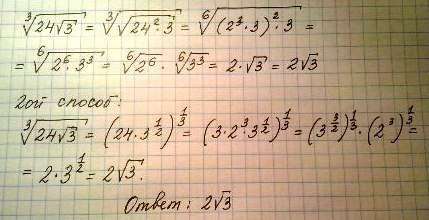 ∛(24√3) = ∛(√(24²·3)) = ⁶√((2³·3)²·3) =
= ⁶√(2⁶·3³) = ⁶√(2⁶) · ⁶√(3³) = 2·√3 = 2√3
2ой способ:
∛(24√3) = (24·3^(1/2))^(1/3) = (3·2³·3^(1/2))^(1/3) = (3^(3/2))^(1/3) · (2³)^(1/3) =
= 2·3^(1/2) = 2√3.
Ответ: 2√3